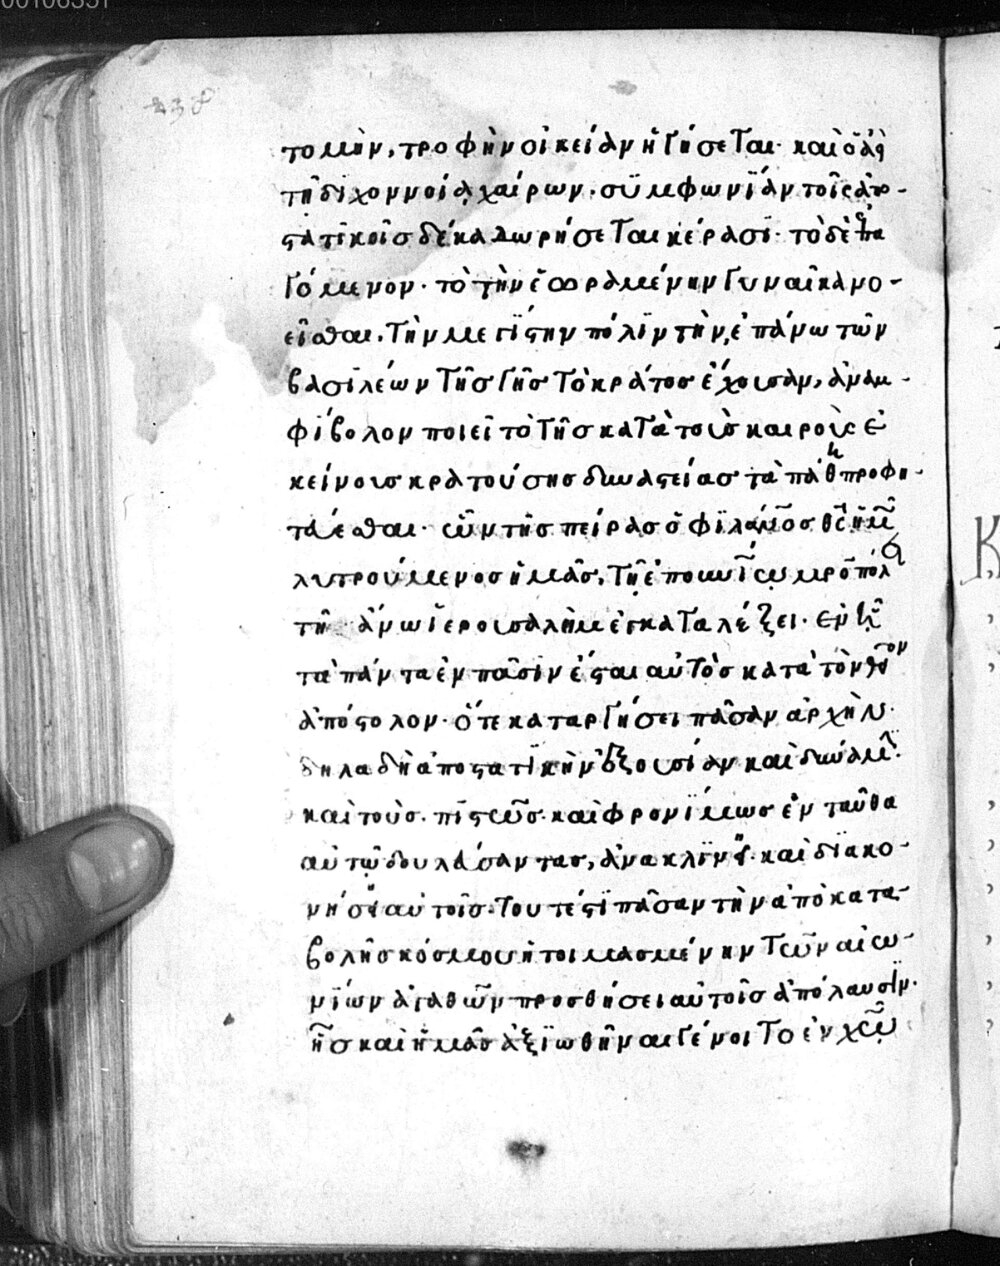 00106351
238
τομὴν, τροφὴν οἰκείαν ἡγήσεται· καὶ ὁ ἀεὶ
τῇ διχοννοίᾳ χαίρων· συμφωνίαν τοῖς ἀπο-
στατικοῖς δέκα δωρήσεται κέρασι· τὸ δὲ ἐπα
γόμενον· τὸ τὴν ἑωραμένην γυναῖκα νο-
εῖσθαι. τὴν μεγίστην πόλιν τὴν, ἐπάνω τῶν
βασιλέων τῆς γῆς τὸ κράτος ἔχουσαν, ἀναμ-
φίβολον ποιεῖ τὸ τῆς κατὰ τοὺς καιροὺς ἐ
κείνους κρατούσης δυναστείας τὰ πάθη προφη-
τεύεσθαι· ὧν τῆς πείρας ὁ φιλάνος θς ἡμ
λυτρούμενος ἡμᾶς, τῇ ἐπουνίῳ μροπόλ
τῇ ἄνω ἱερουσαλὴμ ἐγκαταλέξει· ἐν ᾗ
τὰ πάντα ἐν πᾶσιν ἔσται αὐτὸς κατὰ τὸν θεῖον
ἀπόστολον· ὅτε καταργήσει πᾶσαν ἀρχὴν·
δηλαδὴ ἀποστατικὴν ἐξουσίαν καὶ δύναμ·
καὶ τοὺς· πιστῶς· καὶ φρονίμως ἐνταῦθα
αὐτῷ δουλεύσαντας, ἀνακλινεῖ· καὶ διακο-
νήσει αὐτοῖς· τουτέστι πᾶσαν τὴν ἀπὸ κατα-
βολῆς κόσμου ἡτοιμασμένην τῶν αἰω-
νίων ἀγαθῶν προσθήσει αὐτοῖς ἀπόλαυσιν·
ἧς καὶ ἡμᾶς ἀξιωθῆναι γένοιτο ἐν χῶ